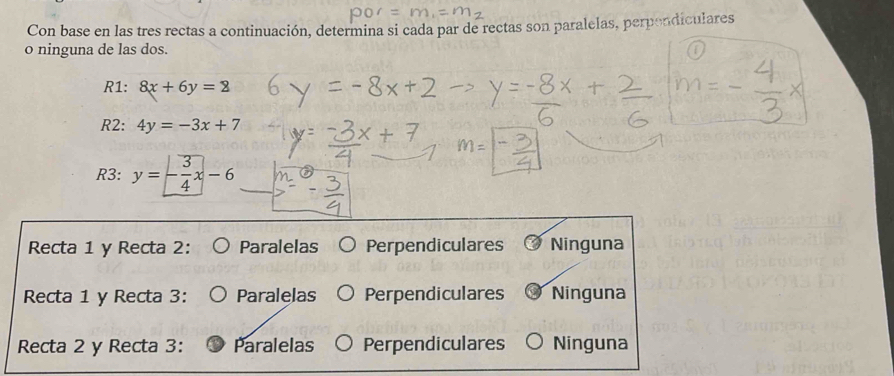 por = m₁ = m₂
Con base en las tres rectas a continuación, determina si cada par de rectas son paralelas, perpendiculares
o ninguna de las dos.
R1: 8x + 6y = 2 6y = -8x+2 -> y = -8x/6 + 2/6 m = -4/3 x ①
R2: 4y = −3x + 7 y = -3x/4 + 7 m = -3/4
R3: y = −3/4 x − 6 m = -3/4
Recta 1 y Recta 2: Paralelas Perpendiculares Ninguna
Recta 1 y Recta 3: Paralelas Perpendiculares Ninguna
Recta 2 y Recta 3: Paralelas Perpendiculares Ninguna